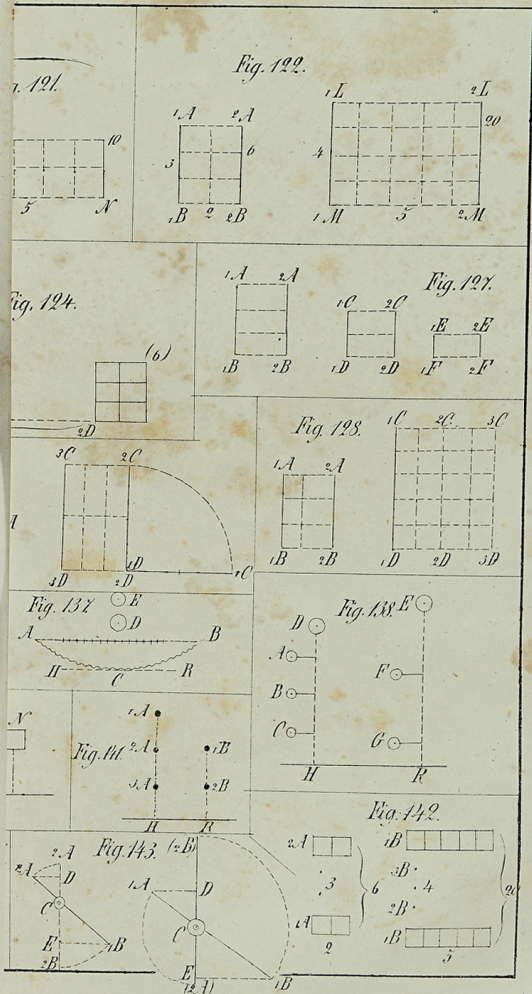 g. 121.
10
5 N
Fig. 122.
1A 2A
3 6
1B 2 2B
1L 2L
20
4
1M 5 2M
Fig. 124.
(6)
2D
Fig. 127.
1A 2A
1B 2B
1C 2C
1D 2D
1E 2E
1F 2F
3C 2C
A
3D 2D 1D 1C
Fig. 128.
1A 2A
1B 2B
1C 2C 3C
1D 2D 3D
Fig. 137
E
D
A B
H C R
Fig. 138.
D E
A
F
B
C
G
H R
N
Fig. 141.
1A
2A 1B
3A 2B
H R
Fig. 142.
2A
3
1A
2
6
1B
3B
4
2B
1B
5
20
2A
1A D
C
E 1B
2B
Fig. 143.
(2B)
1A D
C
E
(2A) 1B